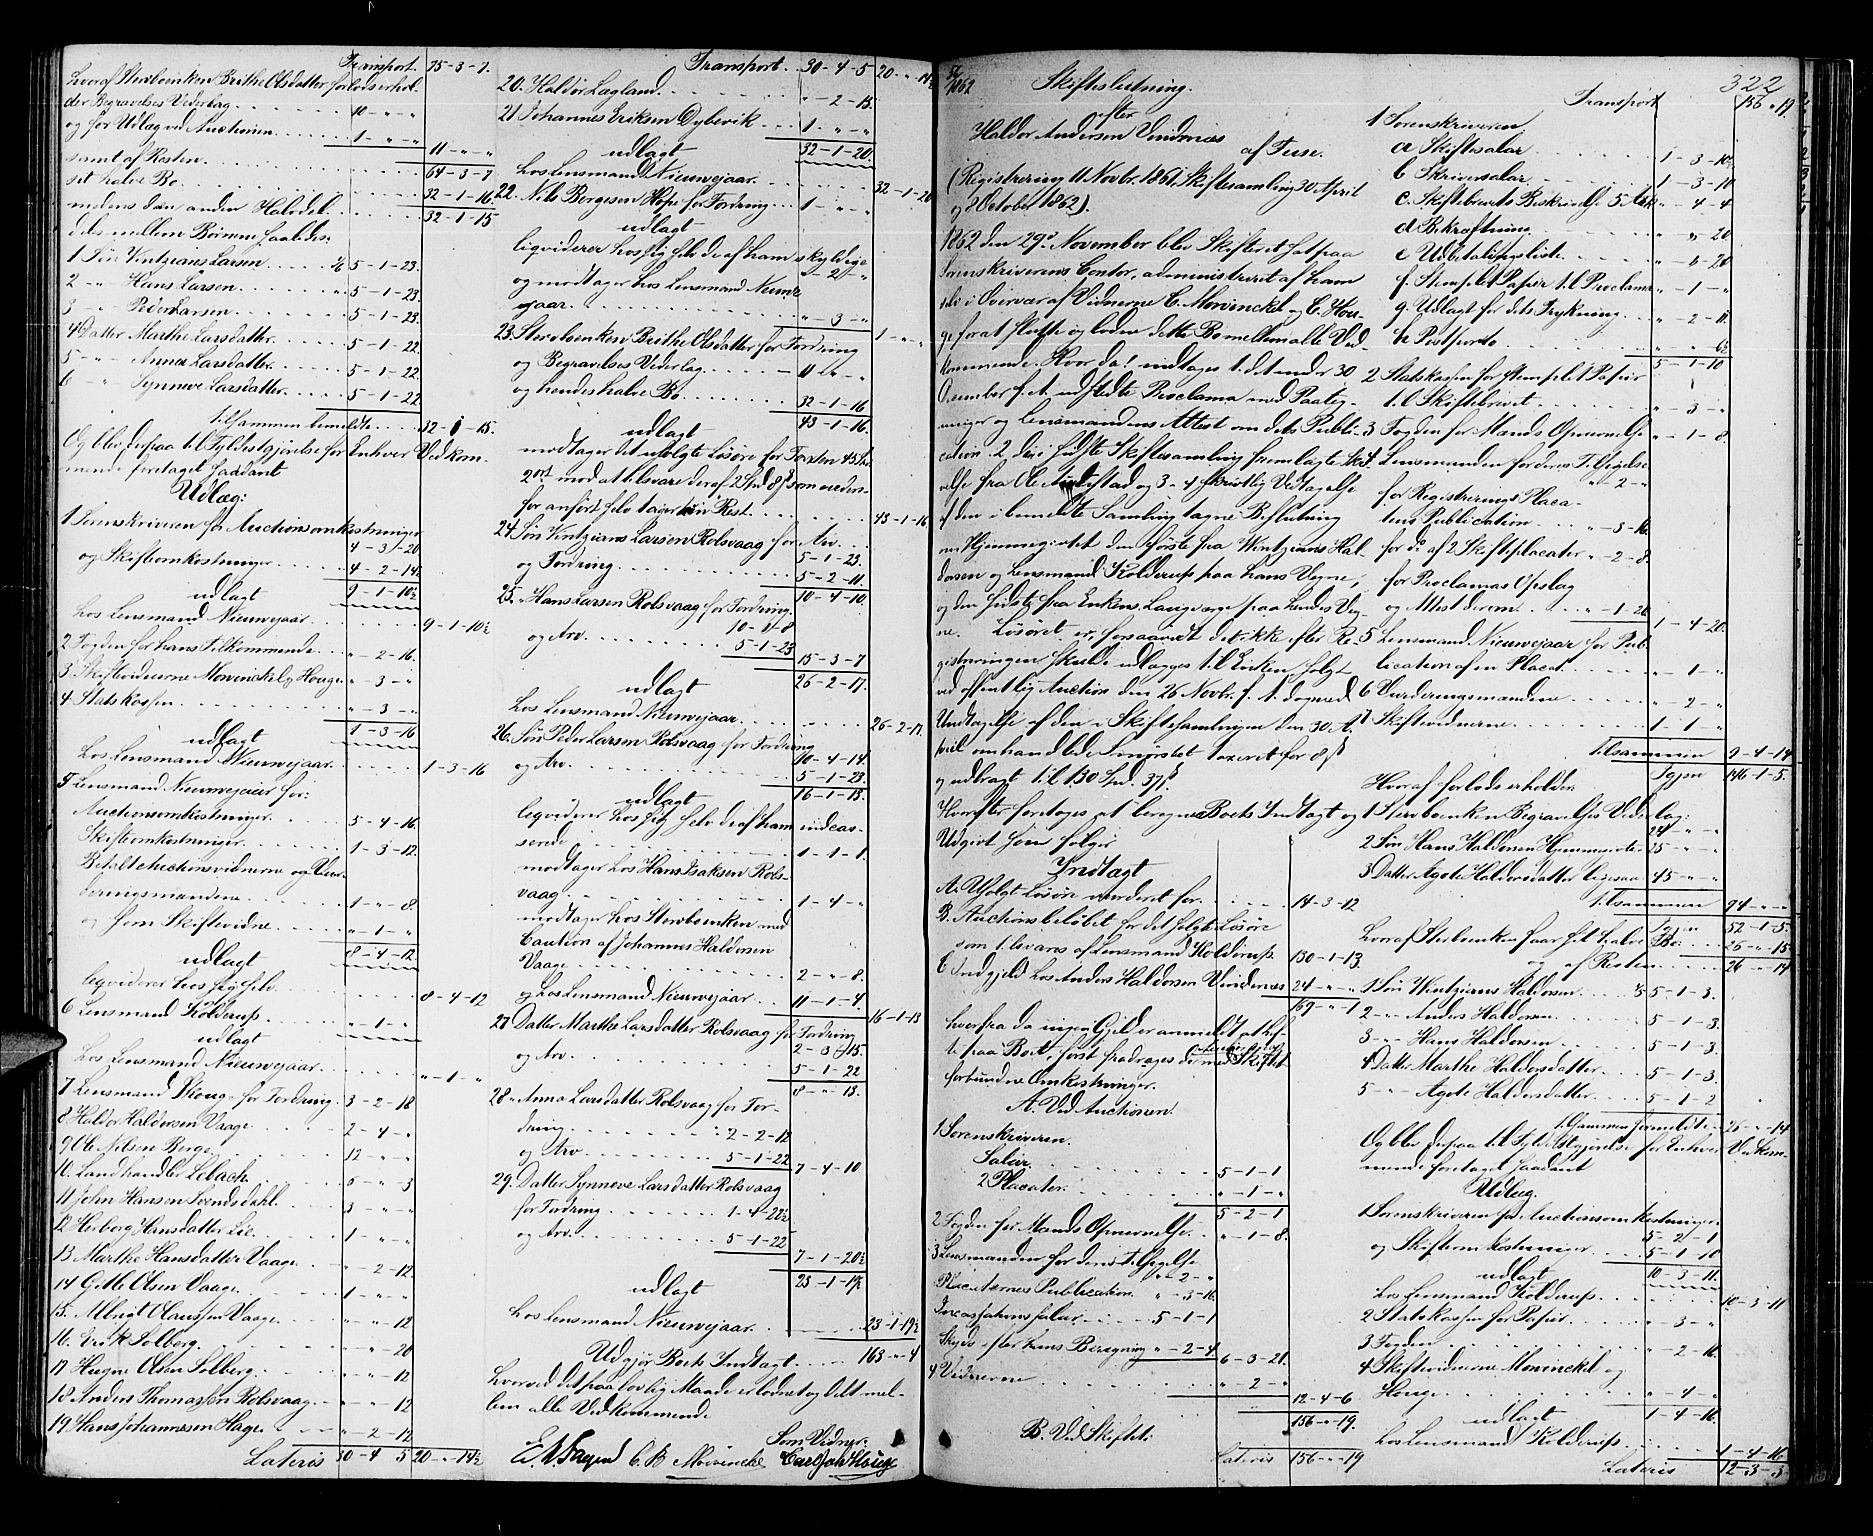 Transport. 75-3-7.
hvoraf Sterboenken Brithe Olsdatter forlods erhol-
der Begravelses Vederlag 10 - " - "
og for Udlæg ved Auctionen 1 - " - "
11 - " - "
samt af Resten 64-3-7
sit halve Bo 32-1-16.
medens den anden Halvdel 32-1-15
deles mellem Børnene saaledes:
1 Søn Vintzians Larsen 5-1-23.
2 - " - Hans Larsen 5-1-23.
3 " Peder Larsen 5-1-23.
4 Datter Marthe Larsdatter 5-1-22.
5 - " - Anna Larsdatter 5-1-22.
6 - " - Synneve Larsdatter 5-1-22
tilsammen bemeldte 32-1-15.
Og blev derpaa til Fyldestgjørelse for Enhver Vedkom-
mende foretaget saadant
Udlæg:
1 Sorenskriveren for Auctionsomkostninger 4-3-20
og Skifteomkostninger 4-2-14½
udlagt 9-1-10½
hos Lensmand Nieuwejaar 9-1-10½
2 Fogden for hans Tilkommende " - 2-16.
3 Skiftevidnerne Mowinckel og Houge " - 3 - "
4 Statskassen " - 3 - "
udlagt 1-3-16
hos Lensmand Nieuwejaar 1-3-16
5 Lensmand Nieuwejaar for:
Auctionsomkostninger 5-4-16.
Skifteomkostninger 1-3-12.
Betalt Auctionsvidnerne og Vur-
deringsmændene 1 - " - 8.
og som Skiftevidne " - 1 - "
udlagt 8-4-12
liqviderer hos sig selv 8-4-12
6 Lensmand Kolderup " - 1 - "
udlagt
hos Lensmand Nieuwejaar " - 1 - "
7 Lensmand Skouge for Fordring 3-2-18
8 Haldor Haldorsen Vaage 2-4 - "
9 Ole Nilsen Berge 12 - " - "
10. Landhandler Lebach 6 - " - 3
11 John Hansen Svendsdahl 3 - " - "
12 Herborg Hansdatter Lie 1 - " - "
13 Marthe Hansdatter Vaage " - 2-12.
14 Gitle Olsen Vaage 1 - " - "
15. Albrigt Olaussen Vaage " - " - 12
16 Erik Solberg " - " - 20
17 Haagen Olsen Solberg " - " - 12
18 Anders Thomassen Rolsvaag " - " - 12
19 Hans Johannessen Hage " - 2-12
Lateris 30-4-5 20 - " - 14½
Transport 30-4-5 20 - " - 14½
20. Haldor Lagland " - 2-15.
21 Johannes Eriksen Dybevik 1 - " - "
udlagt 32-1-20.
hos Lensmand Nieuwejaar 32-1-20
22. Nils Børgesen Hope for Fordring 1 - " - "
udlagt
liqviderer hos sig selv de af ham skyldige " - 2 - "
og modtager hos Lensmand Nieuwe-
jaar " - 3 - "
1 - " - "
23. Sterboenken Brithe Olsdatter for Fordring
og Begravelses Vederlag 11 - " - "
og hendes halve Bo 32-1-16
udlagt 43-1-16.
modtager det usolgte Løsøre for Taxten 45 Spd
2 ort mod at tilsvare deraf 2 Spd 8 s som neden-
for anført selv tager sin Rest 43-1-16
24. Søn Vintzians Larsen Rolsvaag for Arv 5-1-23.
og Fordring 5-2-11.
10-4-10.
25. " Hans Larsen Rolsvaag for Fordring 10-1-8
og Arv 5-1-23
15-3-7
udlagt 26-2-17.
hos Lensmand Nieuwejaar 26-2-17.
26. Søn Peder Larsen Rolsvaag for Fordring 10-4-14.
og Arv 5-1-23.
udlagt 16-1-13.
liqviderer hos sig selv de af ham indcas-
serede 1-1-1.
modtager hos Hans Isaksen Rols-
vaag 1-4 - "
modtager hos Sterboenken med
Caution af Johannes Haldorsen
Vaage 2 - " - 8.
og hos Lensmand Nieuwejaar 11-1-4.
16-1-13
27 Datter Marthe Larsdatter Rolsvaag for Fordring 2-3-15.
og Arv 5-1-22
8 - " - 13.
28 " Anna Larsdatter Rolsvaag for For-
dring 2-2-12
og Arv 5-1-22
7-4-10
29. Datter Synneve Larsdatter Rolsvaag
for Fordring 1-4-22½
og Arv 5-1-22
7-1-20½
udlagt 23-1-19½
hos Lensmand Nieuwejaar 23-1-19½
Udgjør Boets Indtægt 163 - " - 4
hvorved det paa lovlig Maade er sluttet og delt mel-
lem alle Vedkommende.
Som Vidner:
C. B. Mowinckel Carl Joh Houge
1862 Skifteslutning 322
efter
Haldor Andersen Vindenæs
af Fuse.
(Registrering 11 Novbr. 1861, Skiftesamling 30 April
og 8 October 1862).
1862 den 29de November blev Skifteret holt paa
Sorenskriverens Contor, administreret af ham
selv i Overvær af Vidnerne C. Mowinckel og C. Hou-
ge for at slutte og lodne dette Bo mellem alle Ved-
kommende. Hvor da 1 indtages det under 30
December f. A. udstedte Proclama med Paateg-
ninger og Lensmandens Attest om dets Publi-
cation. 2 den i sidste Skiftesamling fremlagte Skri-
velse fra Ole Aadlestad og 3-4 skriftlig Vedtagelse
af den i bemeldte Samling tagne Beslutning
om Hjemmegiftet den første fra Wintzians Hal-
dorsen og Lensmand Kolderup paa hans Vegne,
og den sidste fra Enkens Laugværge paa hendes Veg-
ne. Løsøret er, forsaavidt det ikke efter Re-
gistreringen skulde udlægges til Enken solgt
ved offentlig Auction den 26 Novbr. f. A. dog med
Undtagelse af den i Skiftesamlingen den 30 A-
pril omhandlede Smørstet taxeret for 8 s
og udbragt til 130 Spd. 37 s.
Hvorefter foretoges at beregne Boets Indtægt og
Udgivt som følger
Indtægt
A. Usolgt Løsøre vurderet for 14-3-12
B. Auctionsbeløbet for det solgte Løsøre
som tilsvares af Lensmand Kolderup 130-1-13.
C Indgjæld hos Anders Haldorsen Vindenæs 24 - " - "
169 - " - 1
hvorfra da ingen Gjeld er anmeldt at hef-
te paa Boet, først fradrages de med Auctionen og Skiftet
forbundne Omkostninger.
A. Ved Auctionen.
1 Sorenskriveren.
Salair 5-1-1
2 Placater " - 1 - "
5-2-1
2 Fogden for Mænds Opnævnelse " - 1-8.
3 Lensmanden for deres Tilsigelse " - 2 - "
Placaternes Publication " - 3-16
Incassationssalair 5-1-1
Skyds efter hans Beregning " - 2-4
6-3-21.
4 Vidnerne " - 2 - "
12-4-6
156 - " - 19.
B. Ved Skiftet.
Lateris 156 - " - 19
Transport 156 " 19.
1 Sorenskriveren
a Skiftesalair 1-3-10.
b Skriversalair 1-3-10
c. Skiftebrevets Beskrivelse 5 Ark " - 4-4
d Bekræftning " " 20
e Udbetalingsliste " - " - 20
f. Stemplet Papir til Proclama " - 1 - "
g. Udlagt for dets Trykning " - 2-11.
h Postporto " " 6½
5-1-10
2 Statskassen for stemplet Papir
til Skiftebrevet " - 3 - "
3 Fogden for Mænds Opnævnelse " - 1-8.
4. Lensmanden for deres Tilsigelse " - 2 - "
for Registrerings Placa-
tens Publication " - 3-16.
for do af 2 Skifteplacater " - 2-8.
for Proclamas Opslag
og Attest derom " - 1-20
1-4-20.
5 Lensmand Nieuwejaar for Pub-
lication af en Placat " - 1 - "
6 Vurderingsmændene " - 2 - "
7 Skiftevidnerne 1-1 - "
tilsammen 9-4-14
Igjen 146-1-5.
Hvoraf forlods erholder
1 Sterboenken Begravelses Vederlag: 24 - " - "
2 Søn Hans Haldorsen Hjemmegifte 25 - " - "
3 Datter Agate Haldorsdatter ligesaa 45 - " - "
tilsammen 94 - " - "
Igjen 52-1-5.
hvoraf Sterboenken faar sit halve Bo 26 - " - 15.
og af Resten 26 - " - 14
1 Søn Wintzians Haldorsen 5-1-3.
2 - " - Anders Haldorsen 5-1-3.
3 - " - Hans Haldorsen 5-1-3.
4 Datter Marthe Haldorsdatter 5-1-3.
5 - " - Agate Haldorsdatter 5-1-2
tilsammen formeldte 26 - " - 14
Og blev derpaa til Fyldestgjørelse for Enhver Vedkom-
mende foretaget saadant
Udlæg.
1 Sorenskriveren for Auctionsomkostninger 5-2-1
og Skifteomkostninger 5-1-10
udlagt 10-3-11.
hos Lensmand Kolderup 10-3-11
2 Statskassen for Papir " - 3 - "
3 Fogden " - 2-16.
4 Skiftevidnerne Mowinckel og
Houge " - 4 - "
udlagt 1-4-16.
hos Lensmand Kolderup 1-4-16
Lateris 12-3-3